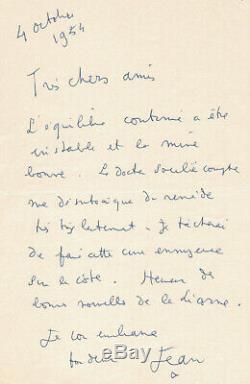 4 octobre
1954
Très chers amis
L'équilibre continue à être
instable et la mine
bonne. Le docteur Soulié compte
me du
très très lentement. Je tâcherai
de faire cette cure ennuyeuse
sur la côte. Heureux de
bonnes nouvelles de la
Je vous embrasse
tous deux Jean